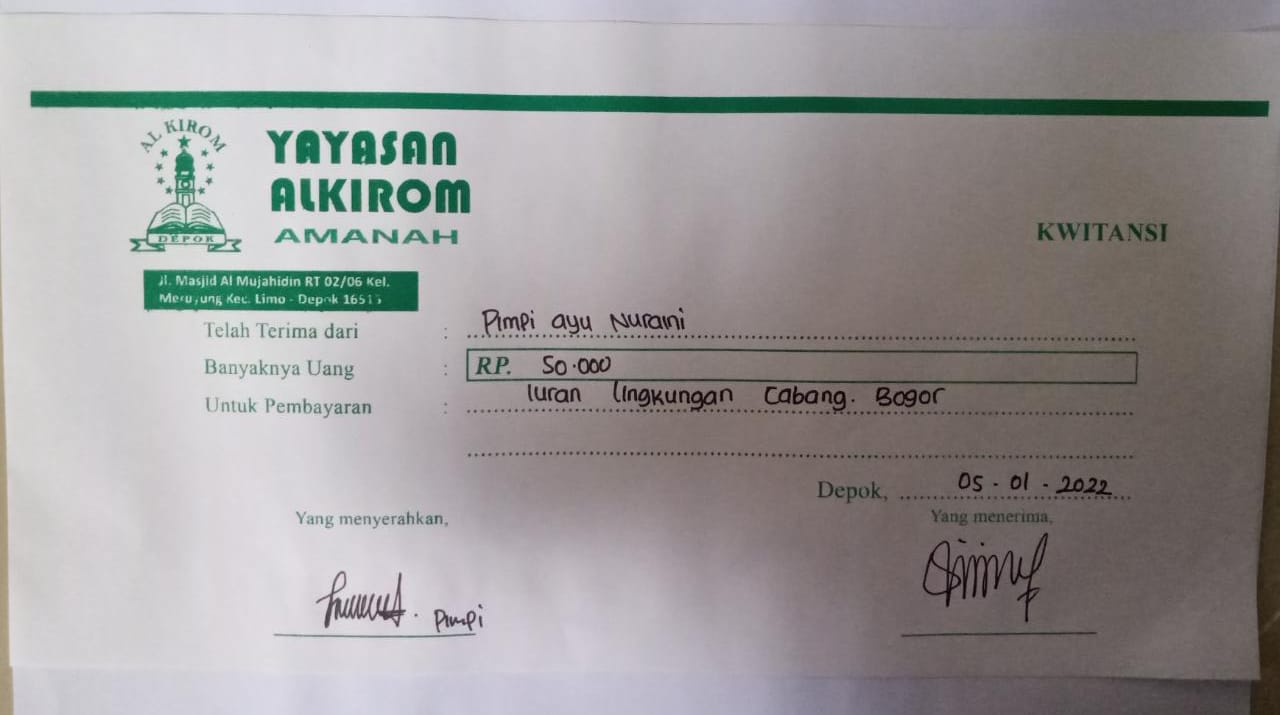 AL KIROM
DEPOK
YAYASAN
ALKIROM
AMANAH
KWITANSI
Jl. Masjid Al Mujahidin RT 02/06 Kel.
Meruyung Kec. Limo - Depok 16515
Telah Terima dari : Pimpi ayu Nuraini
Banyaknya Uang : RP. 50.000
Untuk Pembayaran : Iuran lingkungan Cabang. Bogor
Depok, 05 - 01 - 2022
Yang menyerahkan,
Yang menerima,
Pimpi